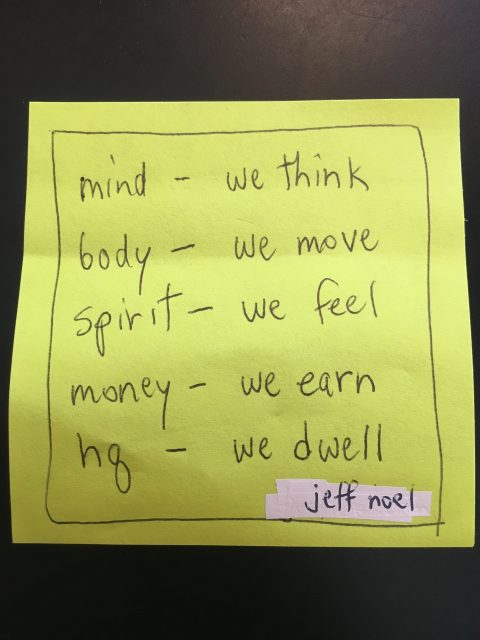 mind - we think
body - we move
spirit - we feel
money - we earn
hq - we dwell
jeff noel